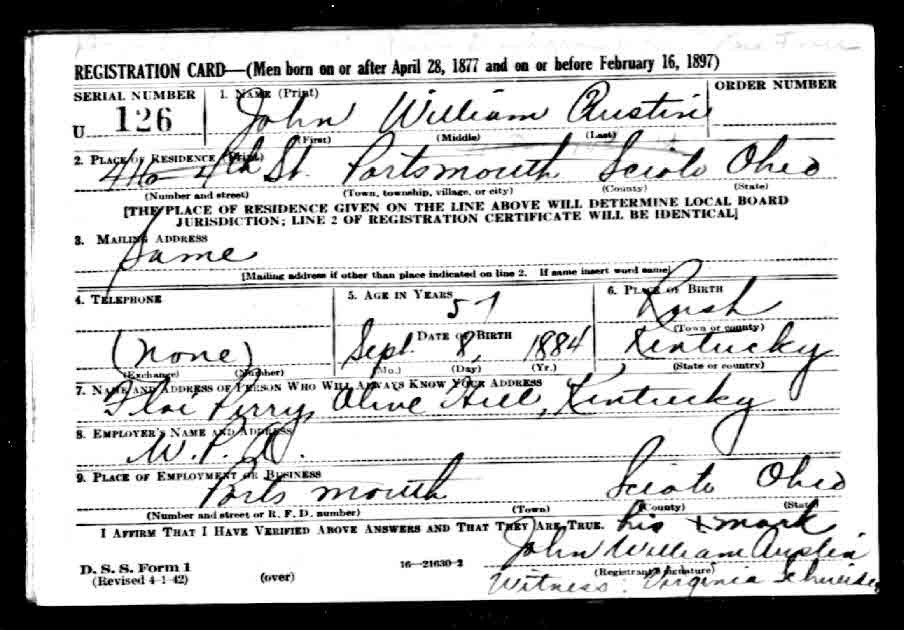 REGISTRATION CARD—(Men born on or after April 28, 1877 and on or before February 16, 1897)
SERIAL NUMBER 1. NAME (Print) ORDER NUMBER
U 126 John William Austin
(First) (Middle) (Last)
2. PLACE OF RESIDENCE (Print)
4th St. Portsmouth Scioto Ohio
(Number and street) (Town, township, village, or city) (County) (State)
[THE PLACE OF RESIDENCE GIVEN ON THE LINE ABOVE WILL DETERMINE LOCAL BOARD
JURISDICTION; LINE 2 OF REGISTRATION CERTIFICATE WILL BE IDENTICAL]
3. MAILING ADDRESS
Same
[Mailing address if other than place indicated on line 2. If same insert word same]
4. TELEPHONE 5. AGE IN YEARS 6. PLACE OF BIRTH
57 Rush
DATE OF BIRTH (Town or county)
(none) Sept. 8, 1884 Kentucky
(Exchange) (Number) (Mo.) (Day) (Yr.) (State or country)
7. NAME AND ADDRESS OF PERSON WHO WILL ALWAYS KNOW YOUR ADDRESS
Perry, Olive Hill, Kentucky
8. EMPLOYER'S NAME AND ADDRESS
W. P. A.
9. PLACE OF EMPLOYMENT OR BUSINESS
Portsmouth Scioto Ohio
(Number and street or R. F. D. number) (Town) (County) (State)
I AFFIRM THAT I HAVE VERIFIED ABOVE ANSWERS AND THAT THEY ARE TRUE. his x mark
John William Austin
D. S. S. Form 1 16—21630-2 (Registrant's signature)
(Revised 4-1-42) (over) Witness: Virginia Schneider